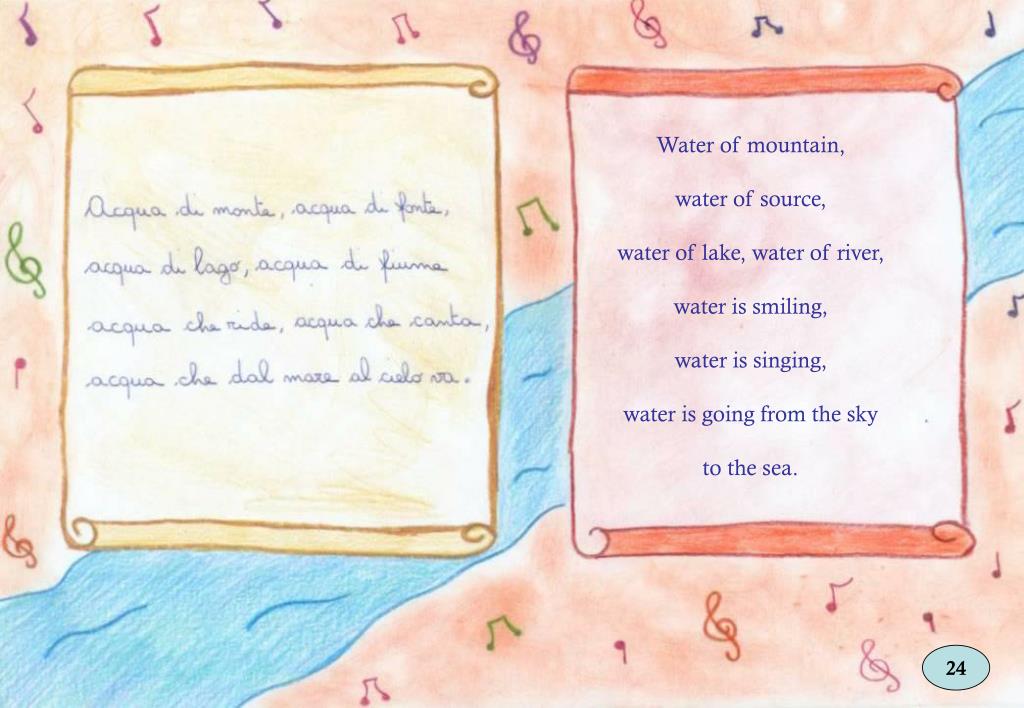 Acqua di monte, acqua di fonte,
acqua di lago, acqua di fiume
acqua che ride, acqua che canta,
acqua che dal mare al cielo va.
Water of mountain,
water of source,
water of lake, water of river,
water is smiling,
water is singing,
water is going from the sky
to the sea.
24